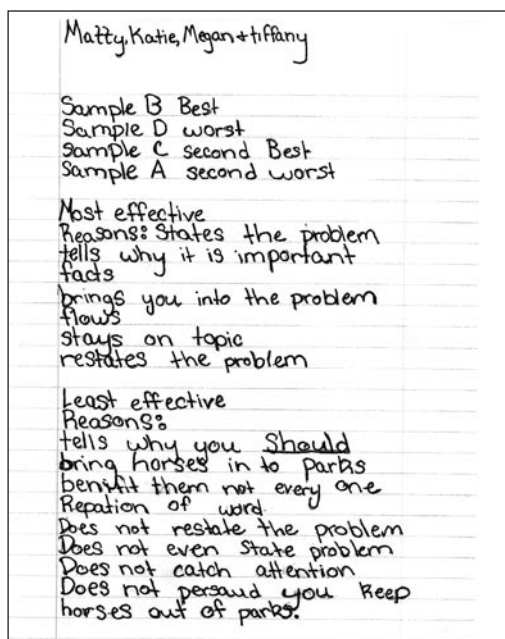 Matty, Katie, Megan + tiffany
Sample B Best
Sample D worst
Sample C second Best
Sample A second worst
Most effective
Reasons: States the problem
tells why it is important
facts
brings you into the problem
flows
stays on topic
restates the problem
Least effective
Reasons:
tells why you Should
bring horses in to parks
benifit them not every one
Repation of word
Does not restate the problem
Does not even State problem
Does not catch attention
Does not persaud you keep
horses out of parks.